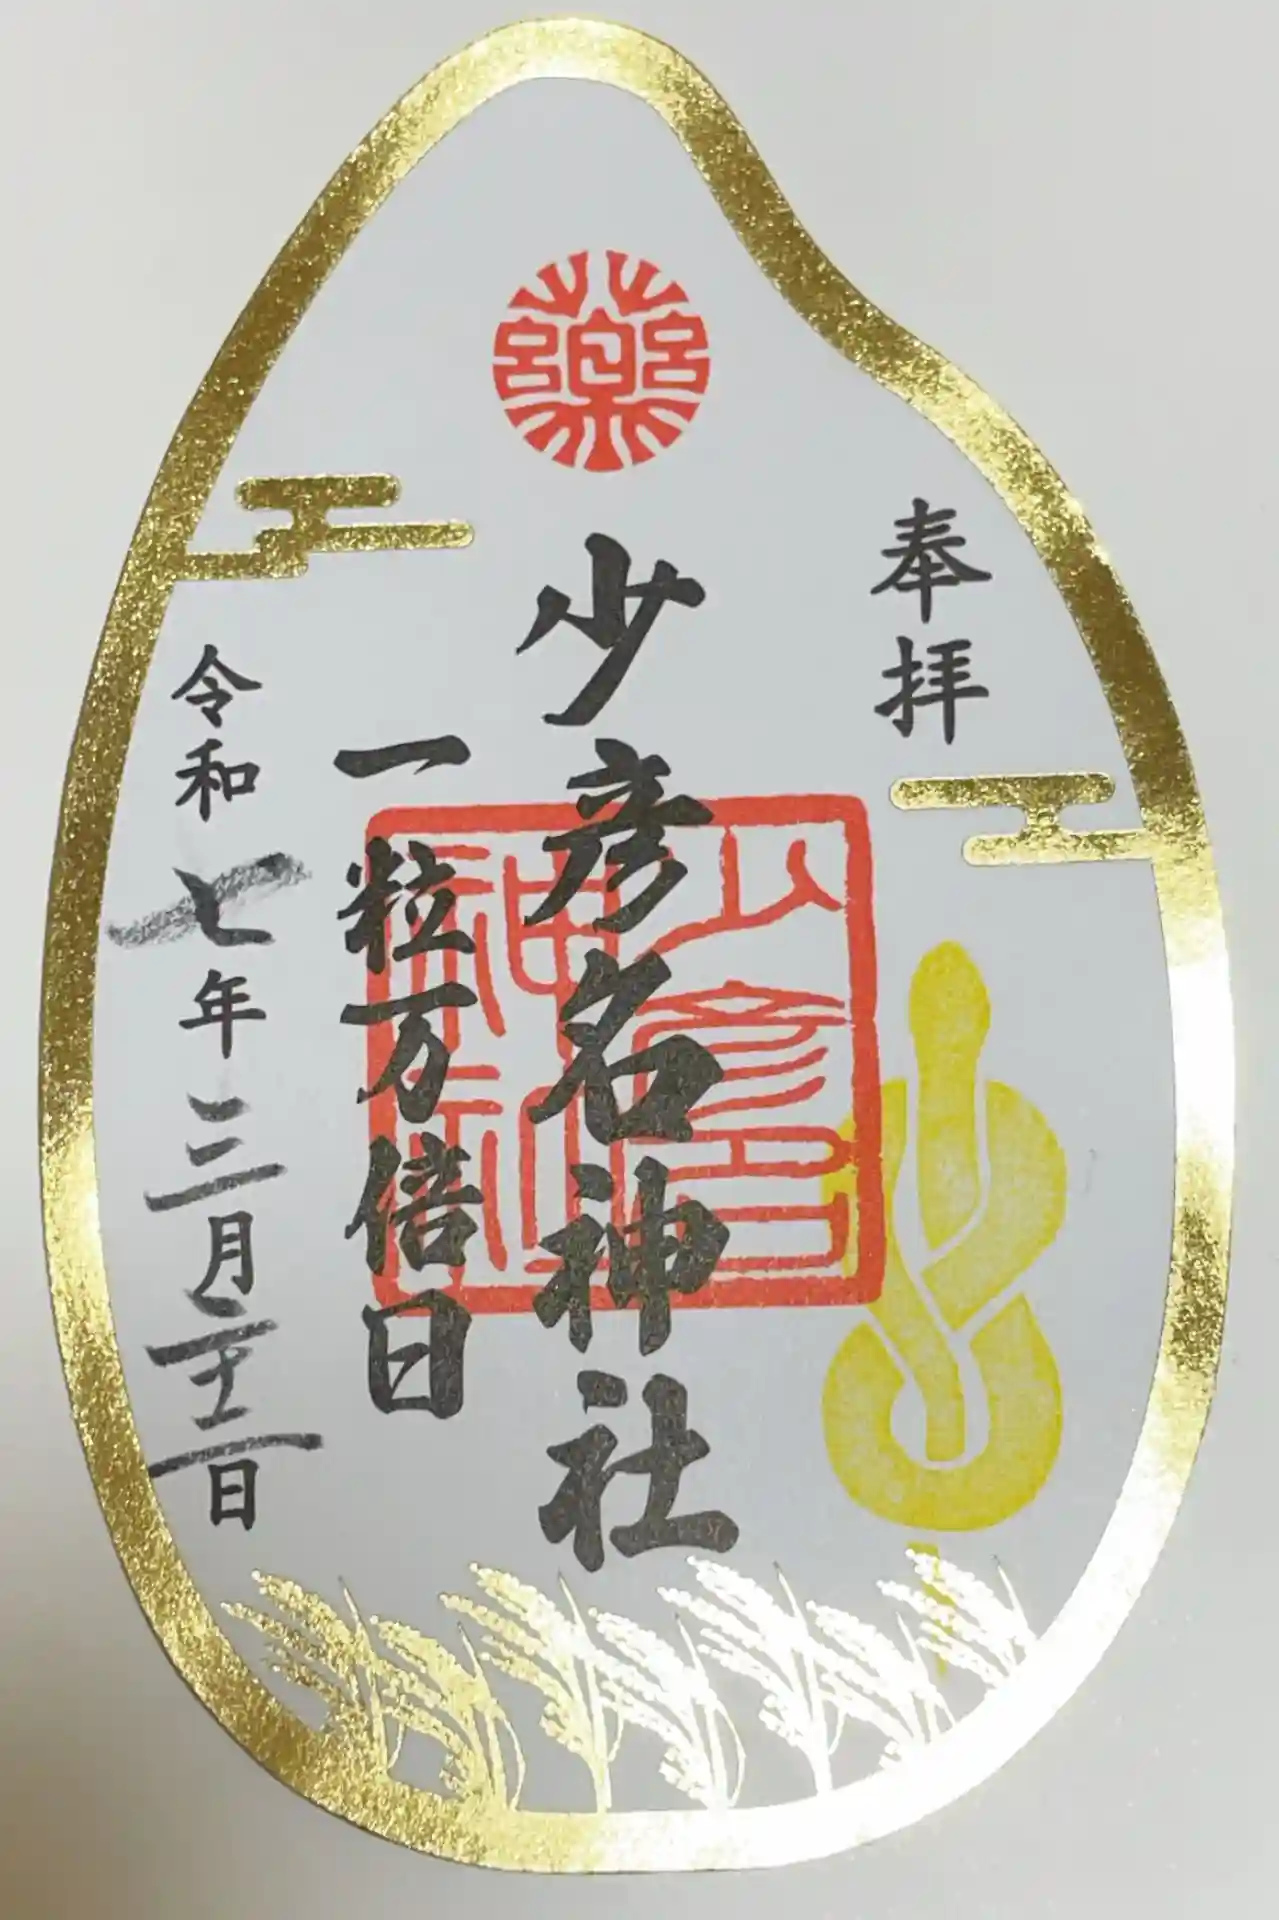 薬
奉拝
少彦名神社
一粒万倍日
令和七年三月二十二日
少彦名
神社